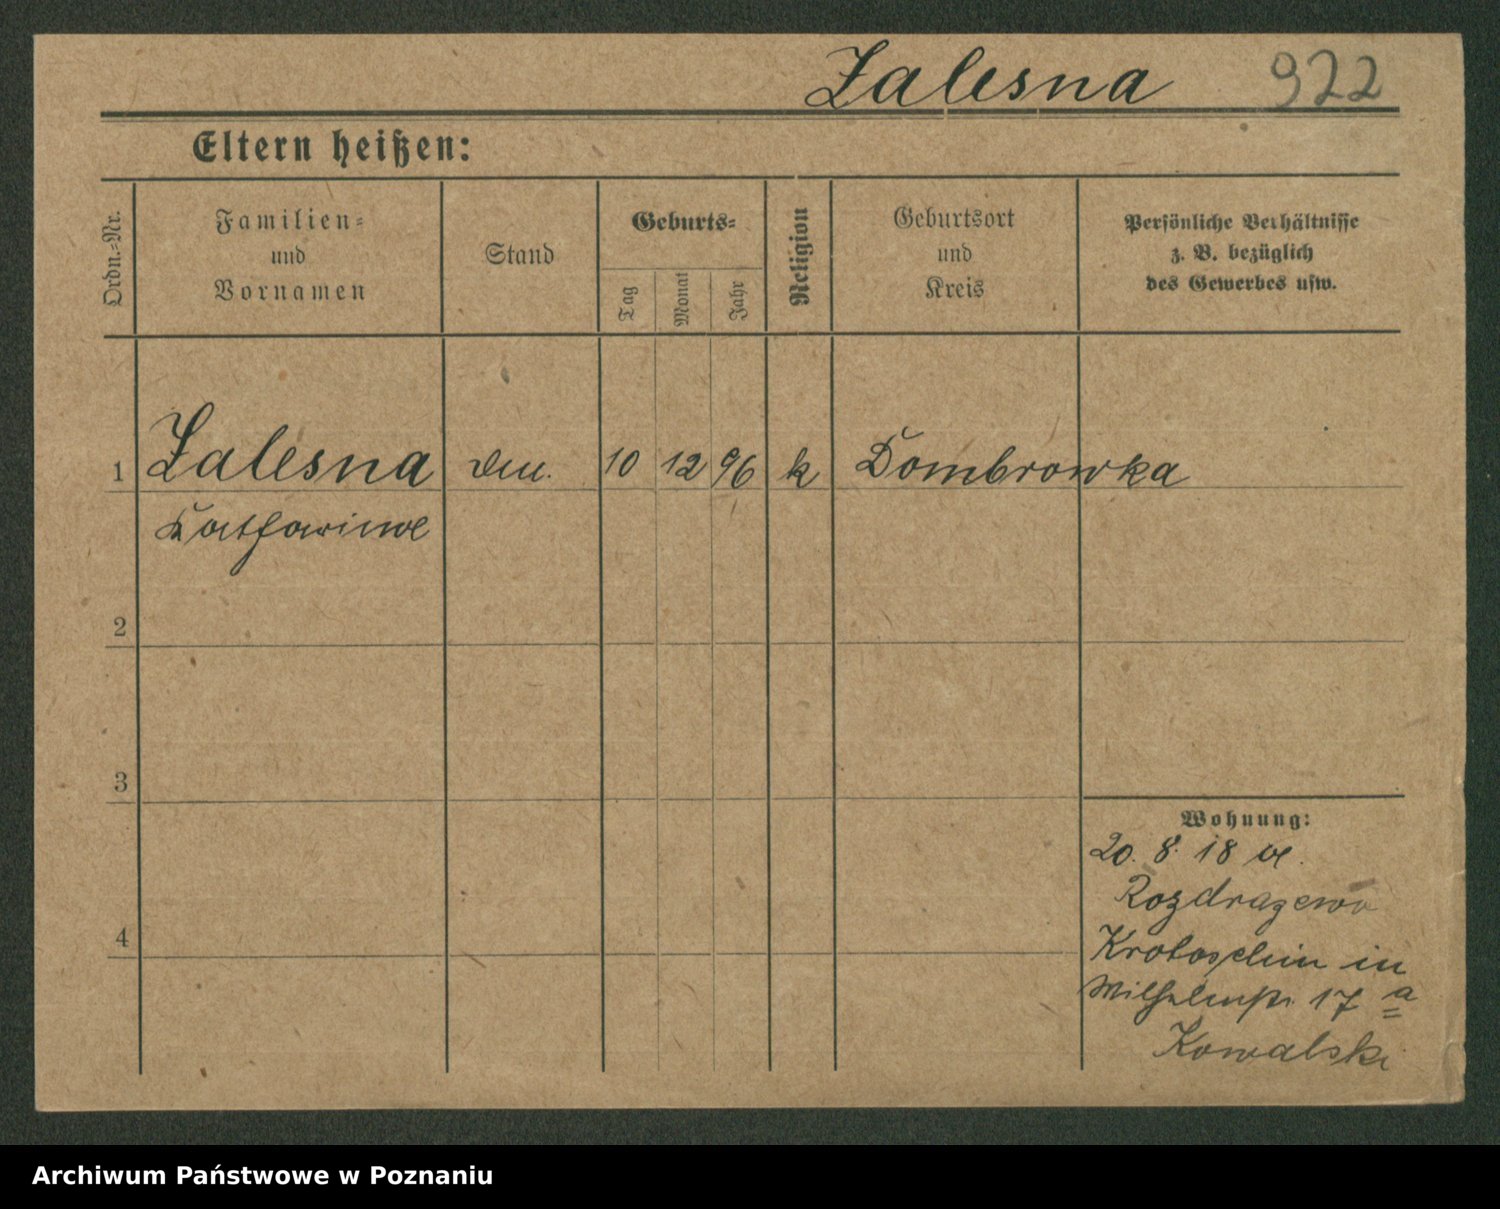 Zalesna 922
Eltern heißen:
Ordn.=Nr.
Familien=
und
Vornamen
Stand
Geburts=
Tag
Monat
Jahr
Religion
Geburtsort
und
Kreis
Persönliche Verhältnisse
z. B. bezüglich
des Gewerbes usw.
1 Zalesna 10 12 96 k Dombrowka
Katharina
2
3
4
Wohnung:
20. 8. 18
Rozdrazewo
Krotoschin in
Wilhelmstr. 17 a
Kowalski
Archiwum Państwowe w Poznaniu